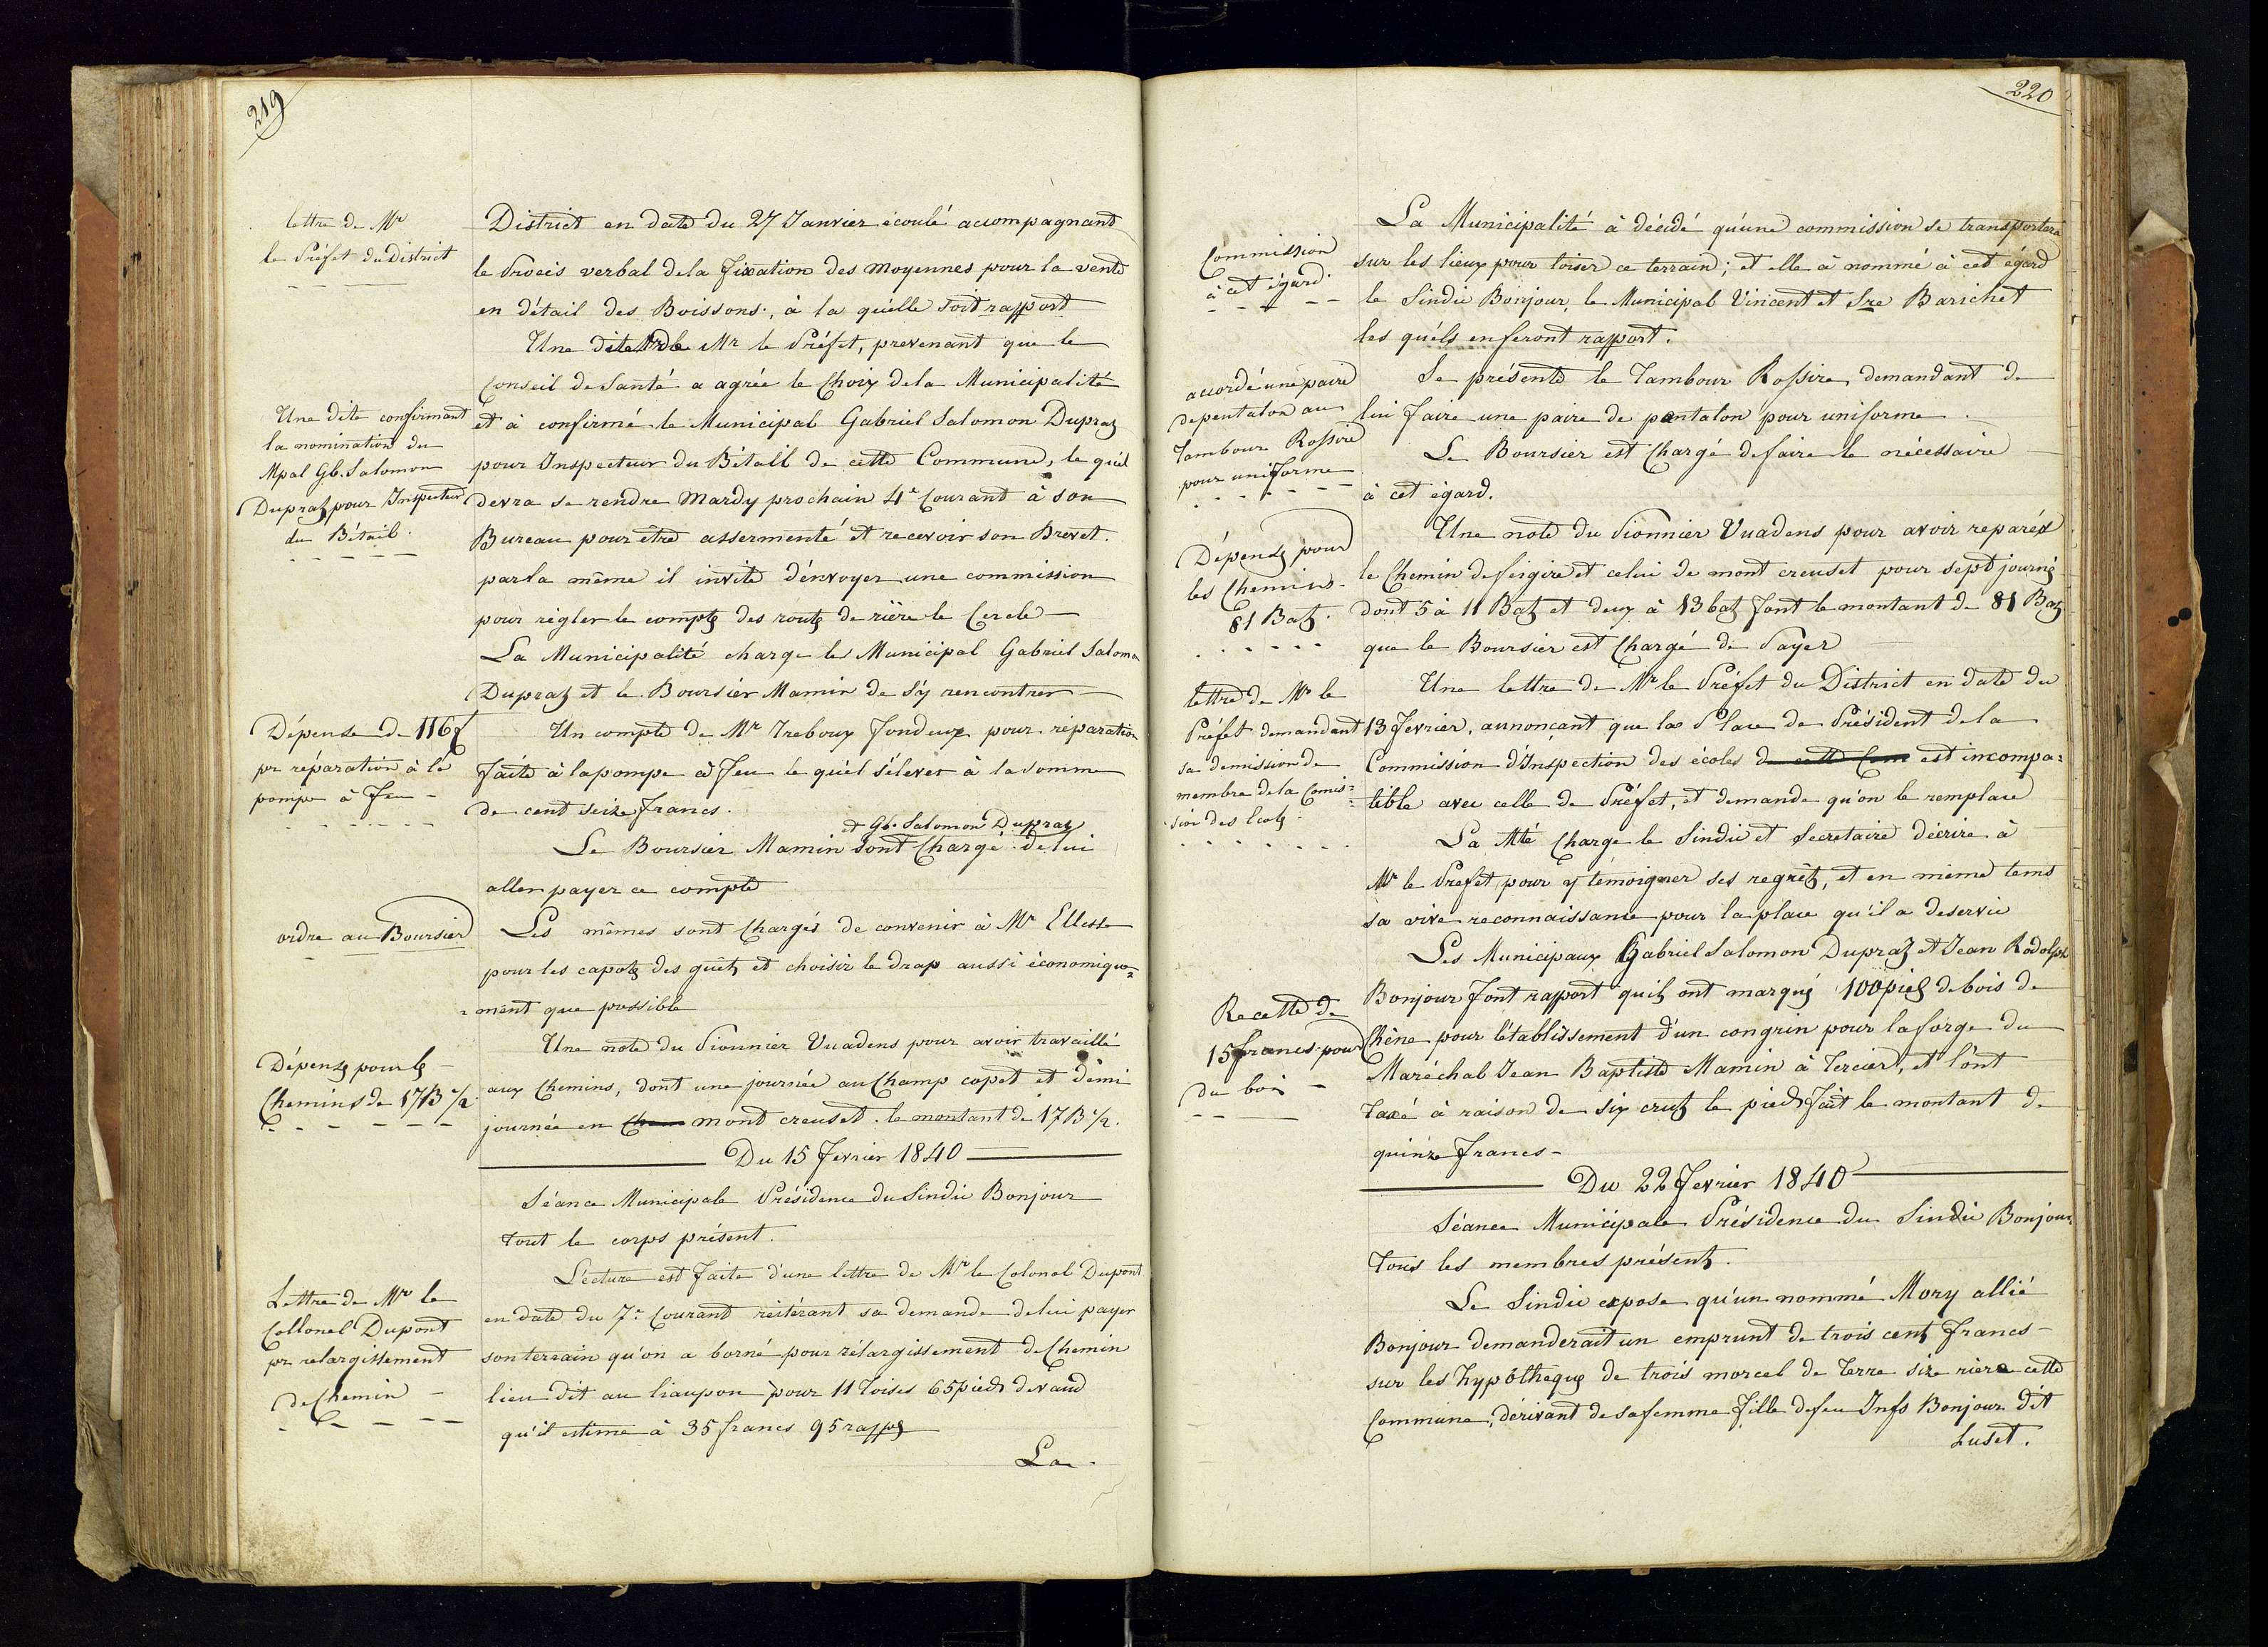 219
lettre de Mr
le Préfet du District
District en date du 27 Janvier écoulé accompagnant
le Procis verbal dela fixation des moyennes pour la vente
en détail des Boissons, à la qu'elle soit rapport
Une dite de Mr le Préfet, prevenant que le
Conseil de Santé a agrée le Choix dela Municipalité
Une dite confirmant
la nomination du
Mpal Gb. Salomon
Dupraz pour Inspecteur
du Bétail.
et à confirmé le Municipal Gabriel Salomon Dupraz
pour Inspecteur du Bétail de cette Commune, le qu'el
devra se rendre Mardy prochain 4e Courant à son
Bureau pour être assermenté et recevoir son Brevet.
par la même il invite d'envoyer une commission
pour règler le comptz des routz de rière le Cercle
La Municipalité charge le Municipal Gabriel Salomon
Dupraz et le Boursier Mamin de s'y rencontrer
Dépense de 116 f
pr réparation à la
pompe à Feu
Un compte de Mr Treboux fondeur pour réparation
faite à la pompe à Feu le qu'el s'élever à la somme
de cent seize francs.
et Gb. Salomon Dupraz
Le Boursier Mamin sont Chargé de lui
aller payer ce compte
ordre au Boursier
Les mêmes sont Chargés de convenir à Mr
pour les capotz des guêtz et choisir le drap aussi économique=
=ment que possible
Dépensz pour ls
Chemins de 17 B 1/2.
Une note du Pionnier Vuadens pour avoir travaillé
aux Chemins, dont une journée au Champ copet et demi
journée en mont creuset. le montant de 17 B 1/2.
Du 15 Fevrier 1840
Séance Municipale Présidence du Sindic Bonjour
tout le corps présent.
Lettre de Mr le
Collonel Dupont
pr relargissement
de Chemin
Lecture est faite d'une lettre de Mr le Colonel Dupont
en date du 7e Courant reitérant sa demande de lui payer
son terrain qu'on a borné pour rélargissement de Chemin
lieu dit au liaupon pour 11 Toises 65 pieds de vaud
qu'il estime à 35 francs 95 rappz
La
220
Commission
à cet égard
La Municipalité à décidé qu'une commission se transportera
sur les lieux pour toiser ce terrain; et elle à nommé à cet égard
le Sindic Bonjour, le Municipal Vincent et Sre Barichet
les qu'els en feront rapport.
accordé une paire
de pentalon au
Tambour Rossire
pour uniforme
Se présente le Tambour Rossire, demandant de
lui faire une paire de pantalon pour uniforme.
Le Boursier est Chargé de faire le nécéssaire
à cet égard.
Dépensz pour
les Chemins
81 Batz.
Une note du Pionnier Vuadens pour avoir reparéz
le Chemin de feigire et celui de mont creuset pour sept journé
dont 5 à 11 Batz et deux à 13 batz font le montant de 81 Batz
que le Boursier est Chargé de Payer
lettre de Mr le
Préfet demandant
sa demission de
membre de la Comis=
=sion des Ecolz.
Une lettre de Mr le Préfet du District en date du
13 fevrier, annonçant que la Place de Président de la
Commission d'Inspection des écoles de cette Com est incompa=
tible avec celle de Préfet, et demande qu'on le remplace
La Mté Charge le Sindic et Secretaire d'écrire à
Mr le Prefet pour y témoigner ses regrêtz, et en même tems
sa vive reconnaissance pour la place qu'il a deservie
Recette de
15 francs pour
du bois
Les Municipaux Gabriel Salomon Dupraz et Jean Rodolph
Bonjour font rapport qu'ilz ont marqué 100 pieds de bois de
Chène pour l'établissement d'un congrin pour la forge du
Maréchal Jean Baptiste Mamin à Tercier, et l'ont
taxé à raison de six crutz le pied fait le montant de
quinze francs
Du 22 fevrier 1840
Séance Municipale Présidence du Sindic Bonjour
Tous les membres présentz.
Le Sindic expose qu'un nommé Mory allié
Bonjour demanderait un emprunt de trois centz francs
sur les hypothèque de trois morcel de terre size rière cette
Commune, dérivant de sa femme fille de feu Bonjour dit
Luset.